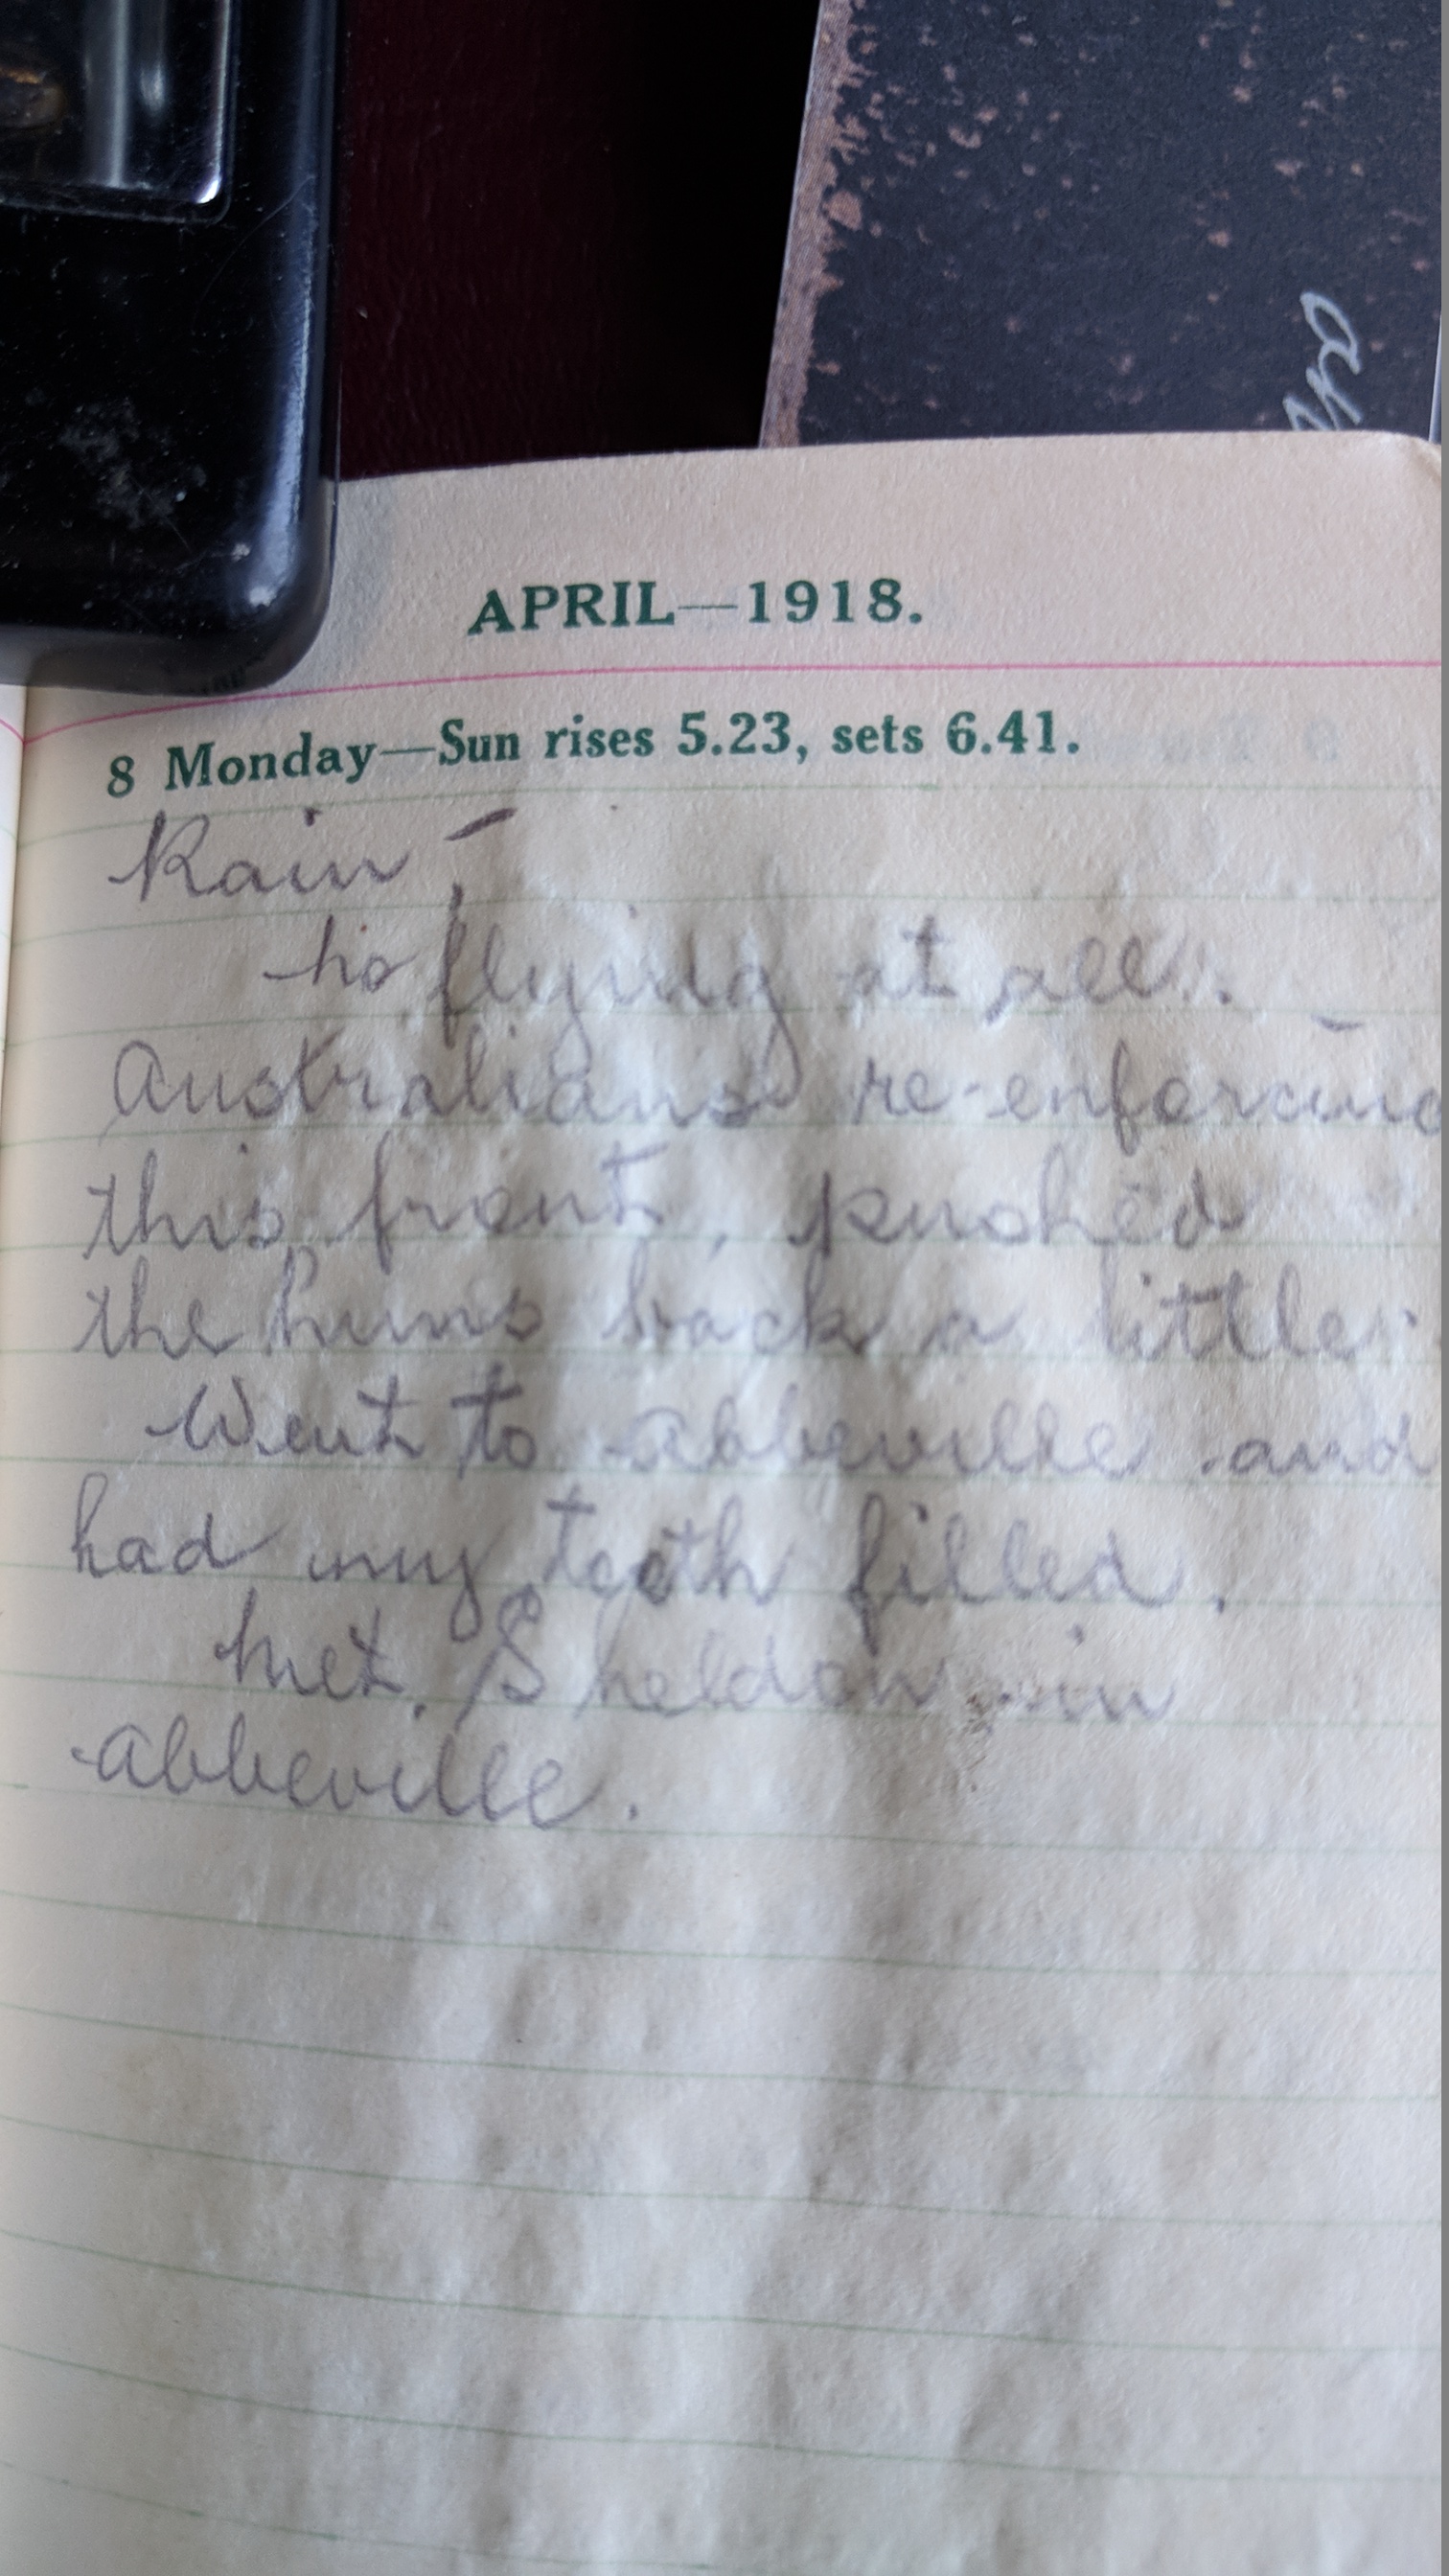 APRIL—1918.
8 Monday—Sun rises 5.23, sets 6.41.
Rain,
No flying at all.
Australians re-enforcing
this front, pushed
the huns back a little.
Went to abbeville and
had my teeth filled.
Met. Sheldon in
abbeville.